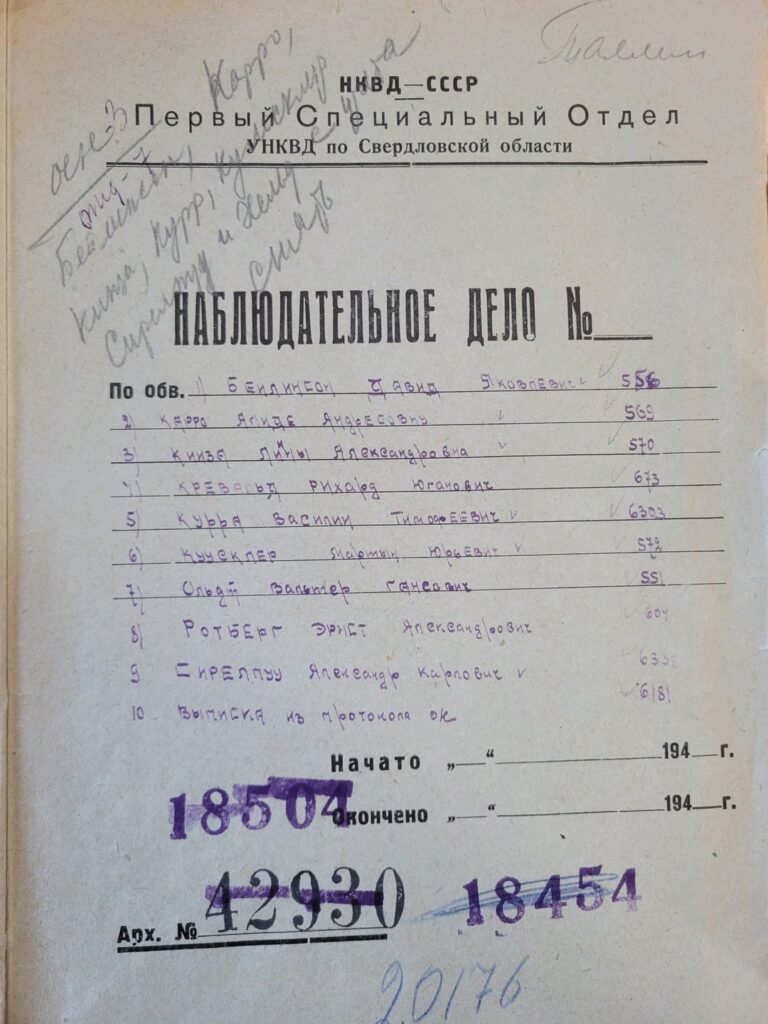 Таллин
НКВД—СССР
Первый Специальный Отдел
УНКВД по Свердловской области
Карро,
Бейлинсон,
Кинза, Курр, Куускляр
Сирелпуу и
снять
НАБЛЮДАТЕЛЬНОЕ ДЕЛО №
По обв. 1) Бейлинсон Давид Яковлевич 556
2) Карро Алиде Андресовну 569
3) Кинза Лины Александровна 570
4) Кревальд Рихард Юганович 673
5) Курра Василий Тимофеевич 6303
6) Куускляр Мартын Юрьевич 572
7) Ольдт Вальтер Гансович 551
8) Ротберг Эрнст Александрович 604
9 Сирелпуу Александр Карлович 6338
10 Выписка из протокола ок 6181
Начато „—“ 194 г.
18504
Окончено „—“ 194 г.
Арх. № 42930 18454
20176